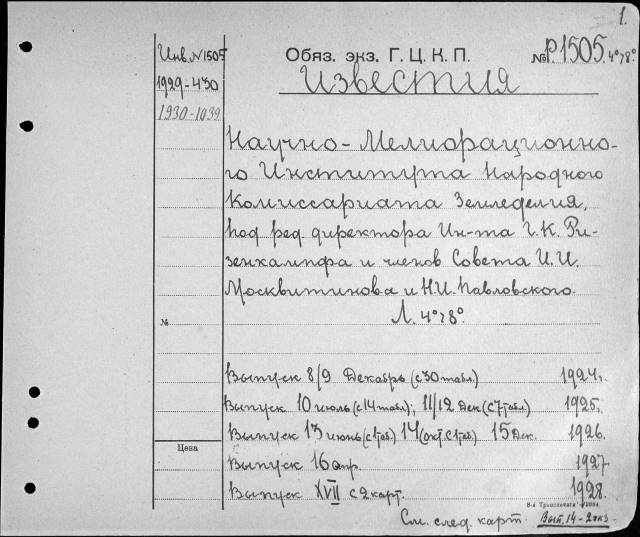 1.
Инв. N 1505
1929-430
1930-1039
Обяз. экз. Г. Ц. К. П.
№ Р.1505. 4°78°
Известия
Научно-Мелиорационно-
го Института Народного
Комиссариата Земледелия,
под ред. директора Ин-та Г. К. Ри-
зенкампфа и членов Совета И. И.
Москвитинова и Н. И. Павловского.
№
Л. 4°78°.
Выпуск 8/9 Декабрь (с 30 табл.) 1924 г.
Выпуск 10 июль (с 14 табл); 11/12 Дек (с 7 табл) 1925.
Выпуск 13 июнь (с 1 таб.) 14 (окт. с 1 таб.) 15 Дек. 1926.
Цена
Выпуск 16 апр. 1927
Выпуск XVII с 2 карт. 1928.
См. след. карт. Вып. 14 - 2 экз.